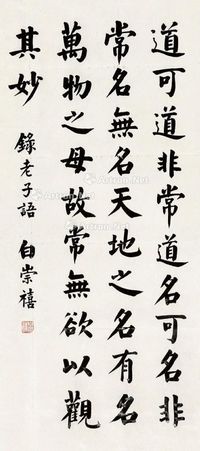 道可道非常道名可名非
常名無名天地之名有名
萬物之母故常無欲以觀
其妙
錄老子語 白崇禧